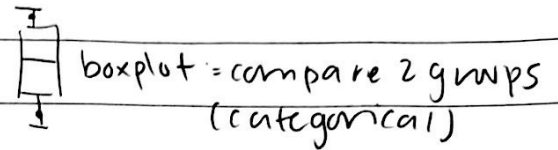 boxplot = compare 2 groups
(categorical)